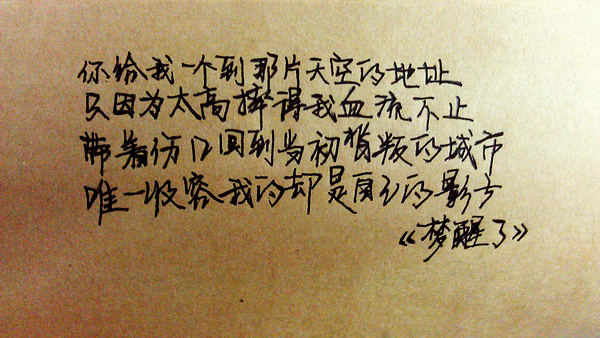 你给我一个到那片天空的地址
只因为太高摔得我血流不止
带着伤口回到当初背叛的城市
唯一收容我的却是自己的影子
《梦醒了》